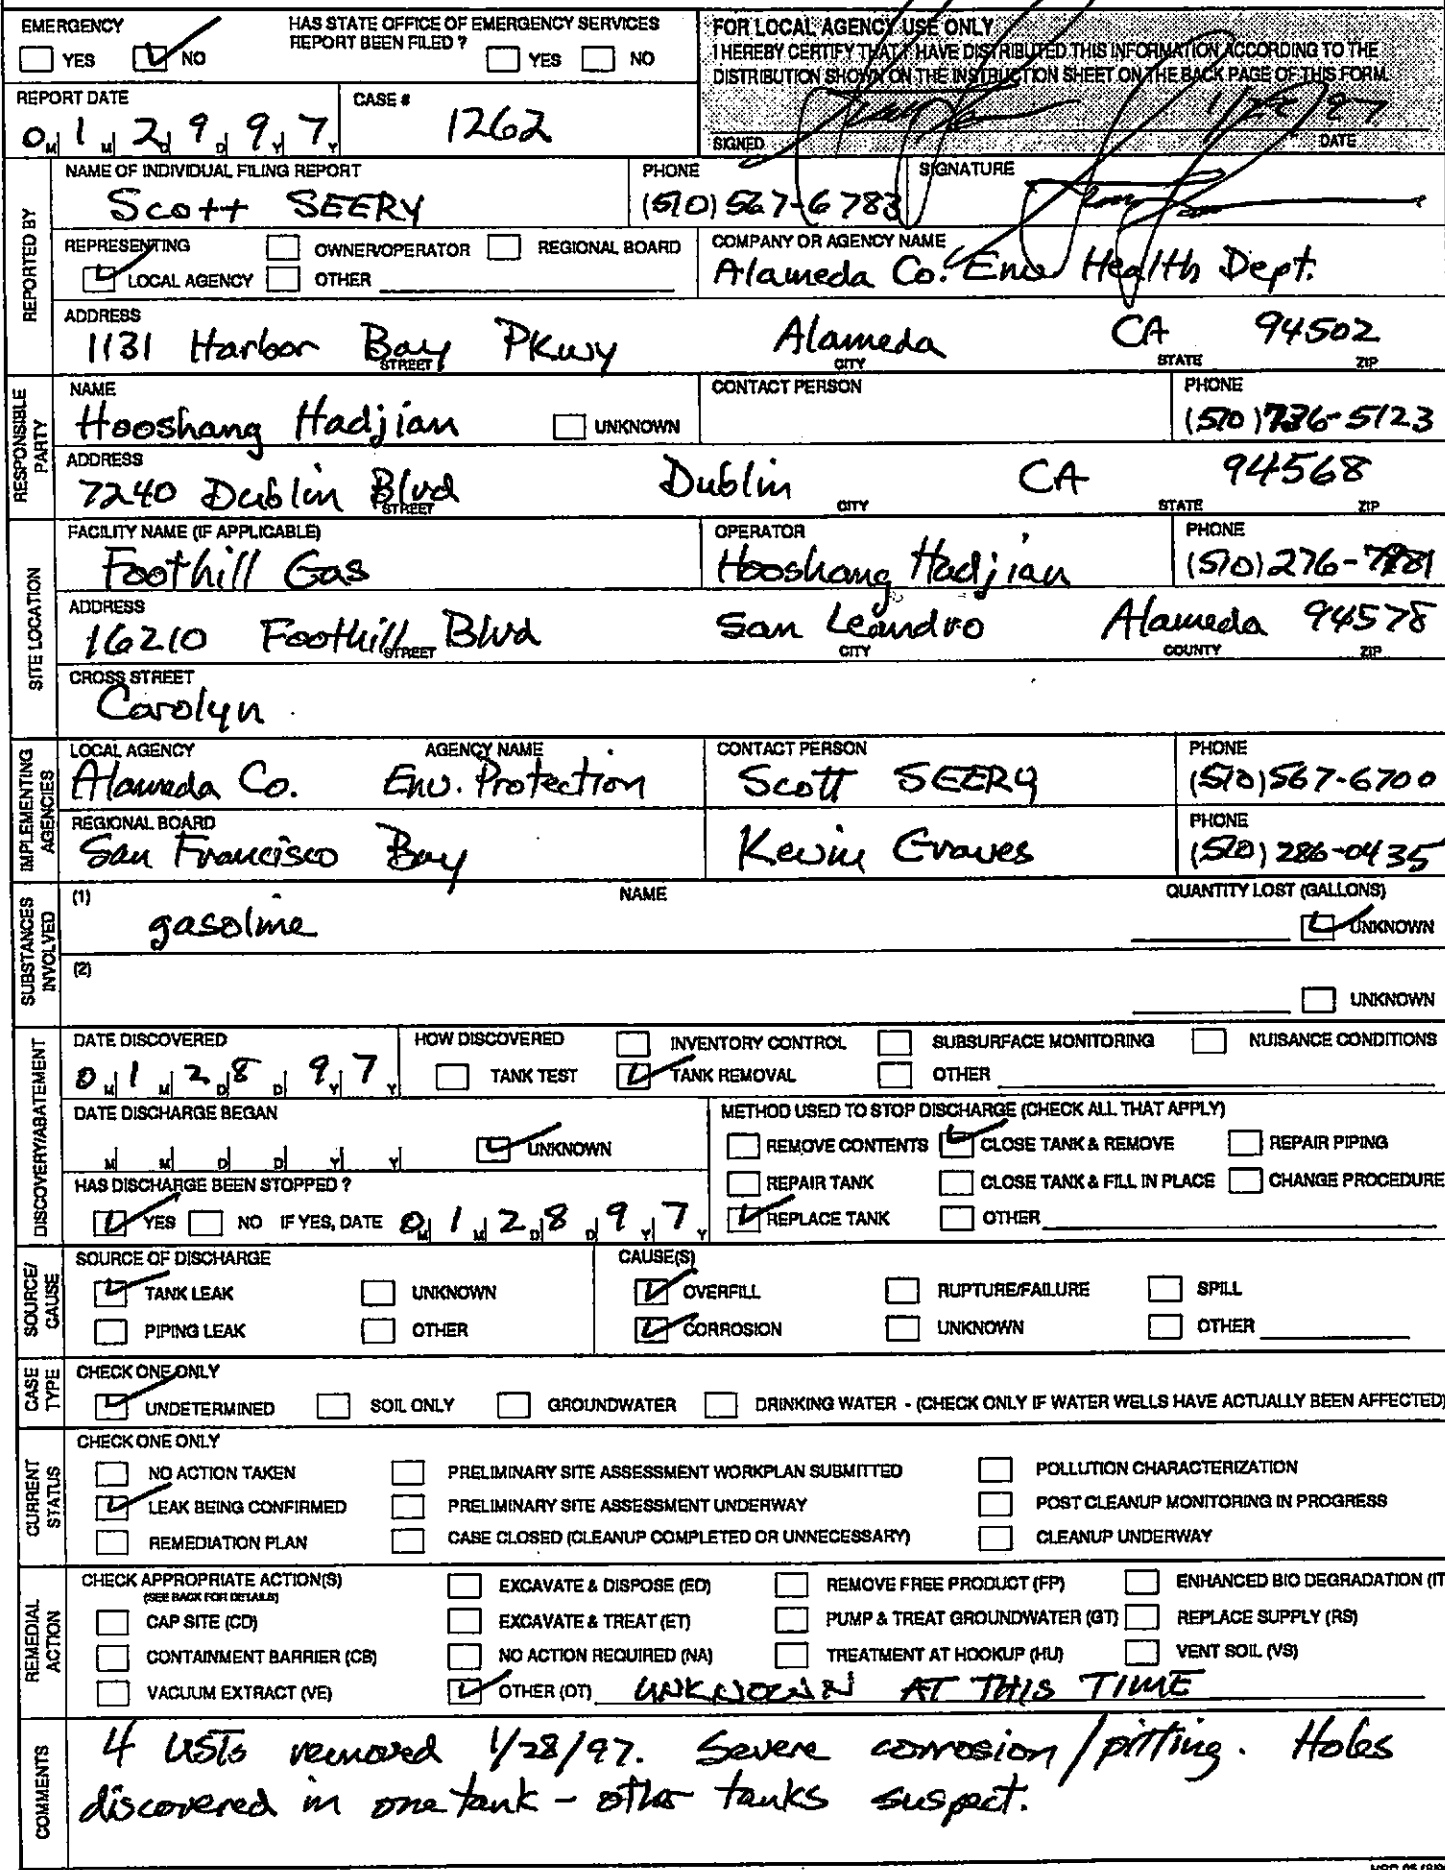 EMERGENCY
YES NO
HAS STATE OFFICE OF EMERGENCY SERVICES
REPORT BEEN FILED ?
YES NO
FOR LOCAL AGENCY USE ONLY
I HEREBY CERTIFY THAT I HAVE DISTRIBUTED THIS INFORMATION ACCORDING TO THE
DISTRIBUTION SHOWN ON THE INSTRUCTION SHEET ON THE BACK PAGE OF THIS FORM.
SIGNED DATE
REPORT DATE
0 1 2 9 9 7
M M D D Y Y
CASE #
1262
REPORTED BY
NAME OF INDIVIDUAL FILING REPORT
Scott SEERY
PHONE
(510) 567-6783
SIGNATURE
REPRESENTING
OWNER/OPERATOR REGIONAL BOARD
LOCAL AGENCY OTHER
COMPANY OR AGENCY NAME
Alameda Co. Env Health Dept.
ADDRESS
1131 Harbor Bay Pkwy Alameda CA 94502
STREET CITY STATE ZIP
RESPONSIBLE
PARTY
NAME
Hooshang Hadjian
UNKNOWN
CONTACT PERSON
PHONE
(510) 736-5123
ADDRESS
7240 Dublin Blvd Dublin CA 94568
STREET CITY STATE ZIP
SITE LOCATION
FACILITY NAME (IF APPLICABLE)
Foothill Gas
OPERATOR
Hooshang Hadjian
PHONE
(510) 276-
ADDRESS
16210 Foothill Blvd San Leandro Alameda 94578
STREET CITY COUNTY ZIP
CROSS STREET
Carolyn
IMPLEMENTING
AGENCIES
LOCAL AGENCY AGENCY NAME
Alameda Co. Env. Protection
CONTACT PERSON
Scott SEERY
PHONE
(510) 567-6700
REGIONAL BOARD
San Francisco Bay
Kevin Graves
PHONE
(510) 286-0435
SUBSTANCES
INVOLVED
(1) NAME QUANTITY LOST (GALLONS)
gasoline
UNKNOWN
(2)
UNKNOWN
DISCOVERY/ABATEMENT
DATE DISCOVERED
0 1 2 8 9 7
M M D D Y Y
HOW DISCOVERED
INVENTORY CONTROL SUBSURFACE MONITORING NUISANCE CONDITIONS
TANK TEST TANK REMOVAL OTHER
DATE DISCHARGE BEGAN
M M D D Y Y
UNKNOWN
HAS DISCHARGE BEEN STOPPED ?
YES NO IF YES, DATE 0 1 2 8 9 7
M M D D Y Y
METHOD USED TO STOP DISCHARGE (CHECK ALL THAT APPLY)
REMOVE CONTENTS CLOSE TANK & REMOVE REPAIR PIPING
REPAIR TANK CLOSE TANK & FILL IN PLACE CHANGE PROCEDURE
REPLACE TANK OTHER
SOURCE/
CAUSE
SOURCE OF DISCHARGE
TANK LEAK UNKNOWN
PIPING LEAK OTHER
CAUSE(S)
OVERFILL RUPTURE/FAILURE SPILL
CORROSION UNKNOWN OTHER
CASE
TYPE
CHECK ONE ONLY
UNDETERMINED SOIL ONLY GROUNDWATER DRINKING WATER - (CHECK ONLY IF WATER WELLS HAVE ACTUALLY BEEN AFFECTED)
CURRENT
STATUS
CHECK ONE ONLY
NO ACTION TAKEN PRELIMINARY SITE ASSESSMENT WORKPLAN SUBMITTED POLLUTION CHARACTERIZATION
LEAK BEING CONFIRMED PRELIMINARY SITE ASSESSMENT UNDERWAY POST CLEANUP MONITORING IN PROGRESS
REMEDIATION PLAN CASE CLOSED (CLEANUP COMPLETED OR UNNECESSARY) CLEANUP UNDERWAY
REMEDIAL
ACTION
CHECK APPROPRIATE ACTION(S)
(SEE BACK FOR DETAILS)
EXCAVATE & DISPOSE (ED) REMOVE FREE PRODUCT (FP) ENHANCED BIO DEGRADATION (IT
CAP SITE (CD) EXCAVATE & TREAT (ET) PUMP & TREAT GROUNDWATER (GT) REPLACE SUPPLY (RS)
CONTAINMENT BARRIER (CB) NO ACTION REQUIRED (NA) TREATMENT AT HOOKUP (HU) VENT SOIL (VS)
VACUUM EXTRACT (VE) OTHER (OT) UNKNOWN AT THIS TIME
COMMENTS
4 USTs removed 1/28/97. Severe corrosion/pitting. Holes
discovered in one tank - other tanks suspect.